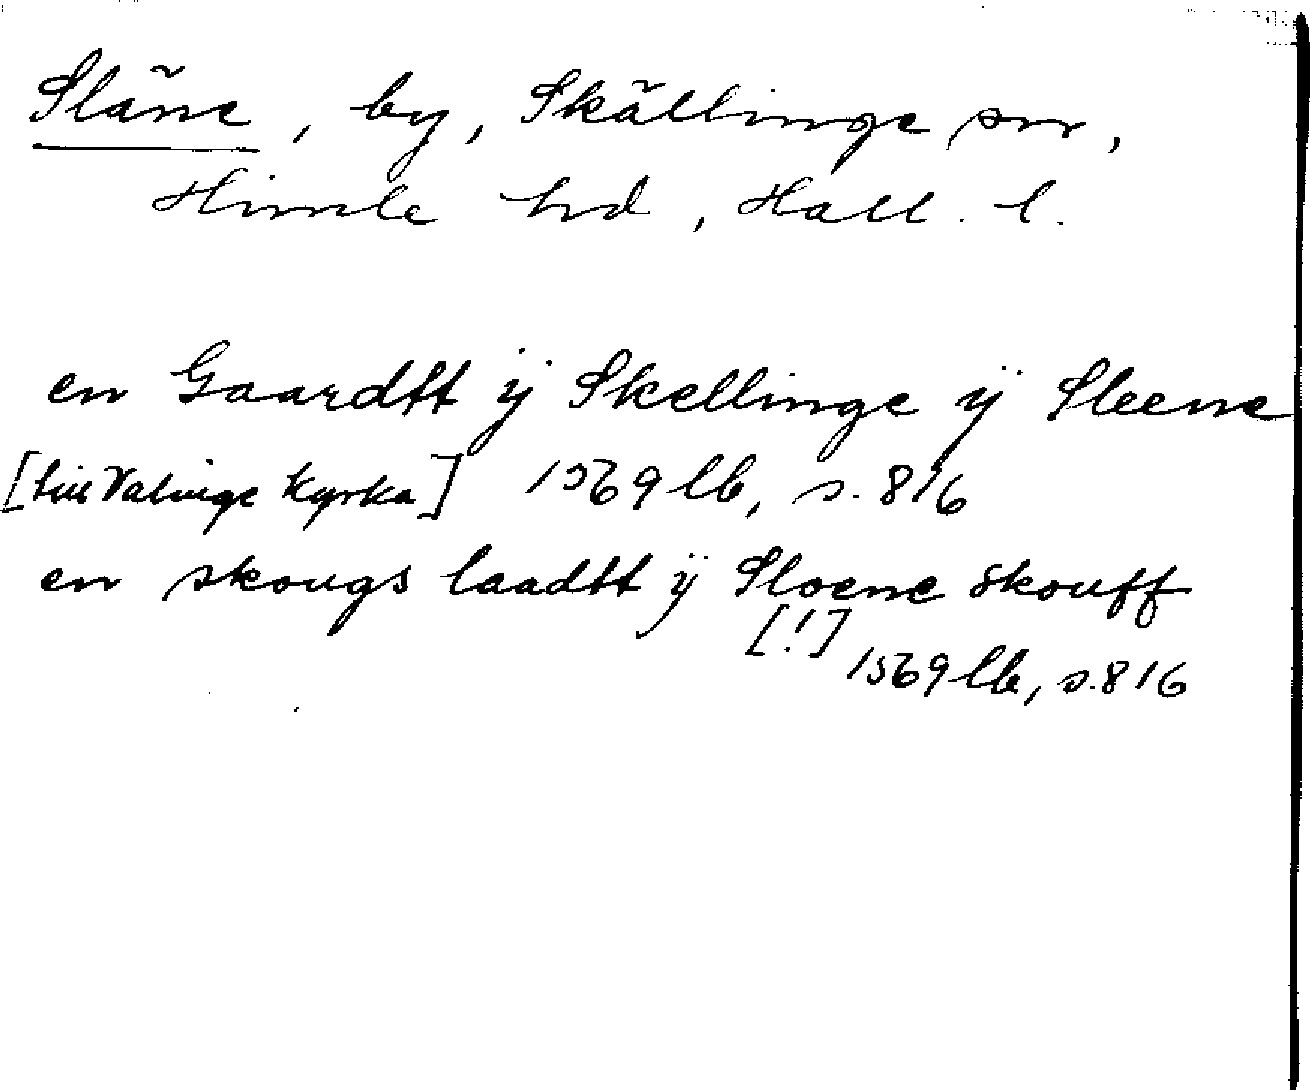 Släne, by, Skällinge sn,
Himle hd, Hall. l.
en Gaardtt ÿ Skellinge ÿ Sleene
[till Valinge Kyrka] 1569 lb, s. 816
en skougs laadtt ÿ Sloene skouff
[!]
1569 lb, s. 816